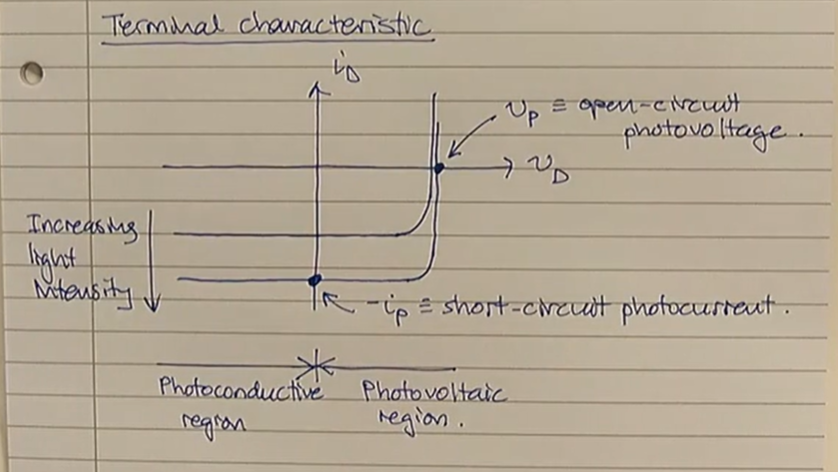 Terminal characteristic
i_D
v_P ≡ open-circuit
photovoltage.
v_D
Increasing
light
intensity
-i_P ≡ short-circuit photocurrent.
Photoconductive
region
Photovoltaic
region.